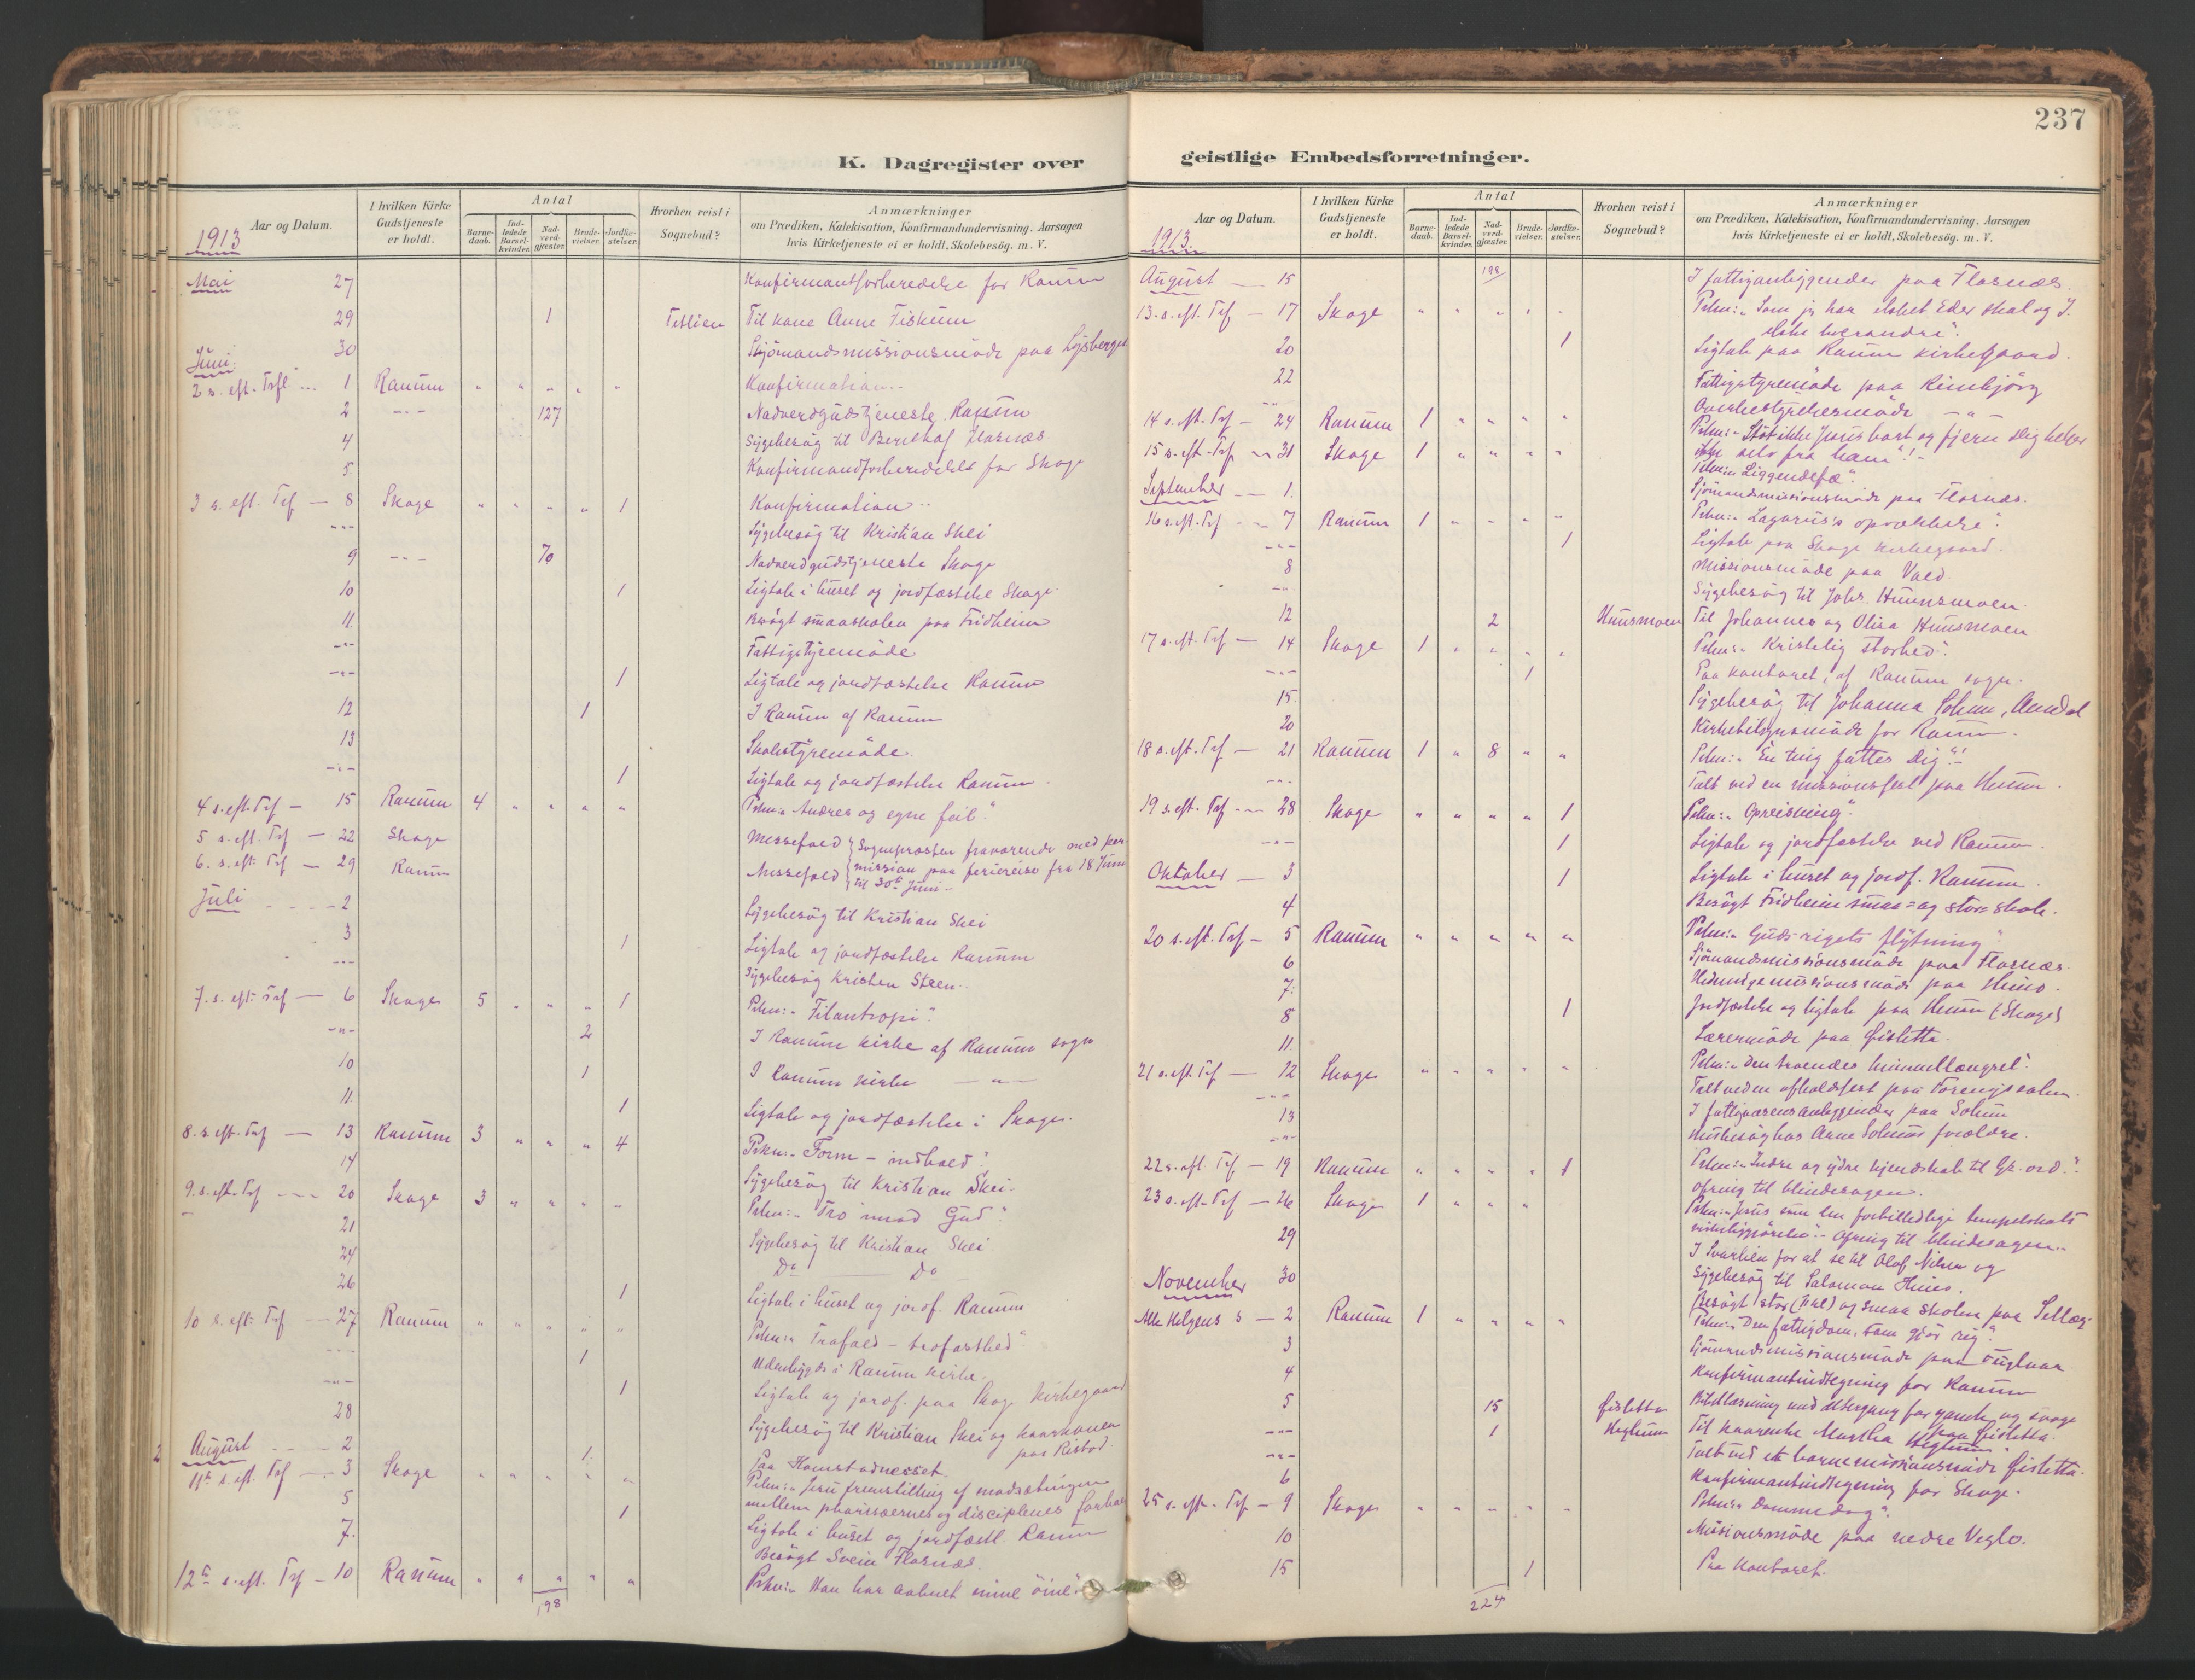 237
K. Dagregister over
geistlige Embedsforretninger.
Aar og Datum.
1913
I hvilken Kirke Gudstjeneste er holdt.
Antal
Barne-daab.
Ind-ledede Barsel-kvinder.
Nad-verd-gjæster.
Brude-vielser.
Jordfæ-stelser.
Hvorhen reist i Sognebud?
Anmærkninger
om Prædiken, Katekisation, Konfirmandundervisning. Aarsagen
hvis Kirketjeneste ei er holdt. Skolebesög. m. V.
Mai 27 Konfirmantforberedelse for Ranum
29 1 Til kone Anne Fiskum
30 Sjömandsmissionsmöde paa
Juni
2 s. eft. Trfl. 1 Ranum " " " " " Konfirmation
2 -"- 127 Nadverdgudstjeneste Ranum
4 Sygebesög til
5 Konfirmandforberedelse for Skage
3 s. eft. Trf — 8 Skage " " " " 1 Konfirmation
-"- Sygebesög til Kristian Skei
9 -"- 70 Nadverdgudstjeneste Skage
10 1 Ligtale i huset og jordfæstelse Skage
11 Besögt smaaskolen paa Fridheim
-"- Fattigstyremöde
-"- 1 Ligtale og jordfæstelse Ranum
12 1 I Ranum af Ranum
13 Skolestyremöde
-"- 1 Ligtale og jordfæstelse Ranum
4 s. eft. Trf — 15 Ranum 4 " " " " "Andres og egne feil"
5 s. eft. Trf — 22 Skage Messefald Sogneprosten fraværende med per-
6. s. eft. Trf — 29 Ranum Messefald mission paa feriereise fra 18 Juni
til 30te Juni
Juli 2 Sygebesög til Kristian Skei
3 1 Ligtale og jordfæstelse Ranum
-"- Sygebesög Kristen Steen
7. s. eft. Trf — 6 Skage 5 " " " 1 "Filantropi"
-"- 2 I Ranum kirke af Ranum sogn
10 1 I Ranum kirke -"-
11. 1 Ligtale og jordfæstelse i Skage
8. s. eft. Trf — 13 Ranum 3 " " " 4 "Form - indhold"
14 Sygebesög til Kristian Skei
9. s. eft. Trf — 20 Skage 3 " " " " "Tro mod Gud"
21 Sygebesög til Kristian Skei
24 Do — Do
26 1 Ligtale i huset og jordf. Ranum
10 s. eft. Trf — 27 Ranum " " " " " "Trofald - trofasthed"
-"- 1 Udenbygds i Ranum kirke
-"- 1 Ligtale og jordf. paa Skage kirkegaard
28 Sygebesög til Kristian Skei og
August 2 1. Paa
11te s. eft. Trf — 3 Skage " " " " " Jesu fremstilling af modsætningen
mellem pharisæernes og disciplenes
5 1 Ligtale i huset og jordfæstl. Ranum
7. Besögt Svein Flasnæs
12te s. eft. Trf — 10 Ranum " " " " " "Han har aabnet mine öine"
198
Aar og Datum.
1913.
I hvilken Kirke Gudstjeneste er holdt.
Antal
Barne-daab.
Ind-ledede Barsel-kvinder.
Nad-verd-gjæster.
Brude-vielser.
Jordfæ-stelser.
Hvorhen reist i Sognebud?
Anmærkninger
om Prædiken, Katekisation, Konfirmandundervisning. Aarsagen
hvis Kirketjeneste ei er holdt, Skolebesög. m. V.
198
August — 15 I fattiganliggender paa Flasnæs.
13. s. eft. Trf — 17 Skage " " " " " "Som jeg har elsket Eder skal og I
elske hverandre".
20 1 Ligtale paa Ranum kirkegaard.
22 Fattigstyremöde paa
-"- -"-
14 s. eft. Trf — 24 Ranum 1 " " " " "Stöt ikke Jesus bort og fjern dig heller
ikke selv fra ham"!
15 s. eft. Trf — 31 Skage 1 " " " " "Liggendefæ".
September — 1. Sjömandsmissionsmöde paa Flasnæs.
16 s. eft. Trf — 7 Ranum 1 " " " " "Lazarus's opvækkelse".
-"- 1 Ligtale paa Skage kirkegaard.
8 Missionsmöde paa Vold.
-"- Sygebesög til Johs. Hunsmoen
12 2 Hunsmoen Til Johannes og Oliva Hunsmoen
17 s. eft. Trf — 14 Skage 1 " " " " "Kristelig storhed".
-"- 1 Paa kontoret, af Ranum sogn.
15 Sygebesög til Johanna Solum,
20 Kirketilsynsmöde for Ranum.
18 s. eft. Trf — 21 Ranum 1 " 8 " " "En ting fattes Dig"!
-"- Talt ved en missionsfest paa
19 s. eft. Trf — 28 Skage " " " " 1 "Opreisning".
-"- 1 Ligtale og jordfæstelse ved Ranum.
Oktober — 3 1 Ligtale i huset og jordf. Ranum.
4 Besögt Fridheim smaa- og storskole.
20 s. eft. Trf — 5 Ranum " " " " " "Guds rigets flytning"
6 Sjömandsmissionsmöde paa Flasnæs
7. Hedningemissionsmöde paa
8 1 Jordfæstelse og ligtale paa (Skage)
11. Lærermöde paa Gisletta.
21 s. eft. Trf — 12 Skage " " " " " "Den troendes himmellængsel".
-"- Talt ved en afholdsfest paa
13 I fattigvæsensanliggender paa Solum
-"- Husbesög hos Arne Solums forældre.
22 s. eft. Trf — 19 Ranum " " " " 1 "Indre og ydre kjendskab til Gs. ord".
Ofring til blindesagen.
23 s. eft. Trf — 26 Skage 1 " " " Jesus som
Ofring til blindesagen
29 I for at se til Olaf Nilsen og
30 Sygebesög til Salamon
Besögt stor og smaa skolen paa
November
Alle Helgens s — 2 Ranum 1 " " " " "Den fattigdom, som gjör rig".
3 Sjömandsmissionsmöde paa
4 Konfirmantindtegning for Ranum
5 15 Gisletta Bibellæsning med altergang for gamle og svage
paa Gisletta.
-"- 1 Heglum Til Martha Heglum
-"- Talt ved et barnemissionsmöde Gisletta.
6 Konfirmantindtegning for Skage.
25 s. eft. Trf — 9 Skage " " " " " "Dommedag".
10 Missionsmöde paa nedre Veglo.
15 1 Paa kontoret.
224